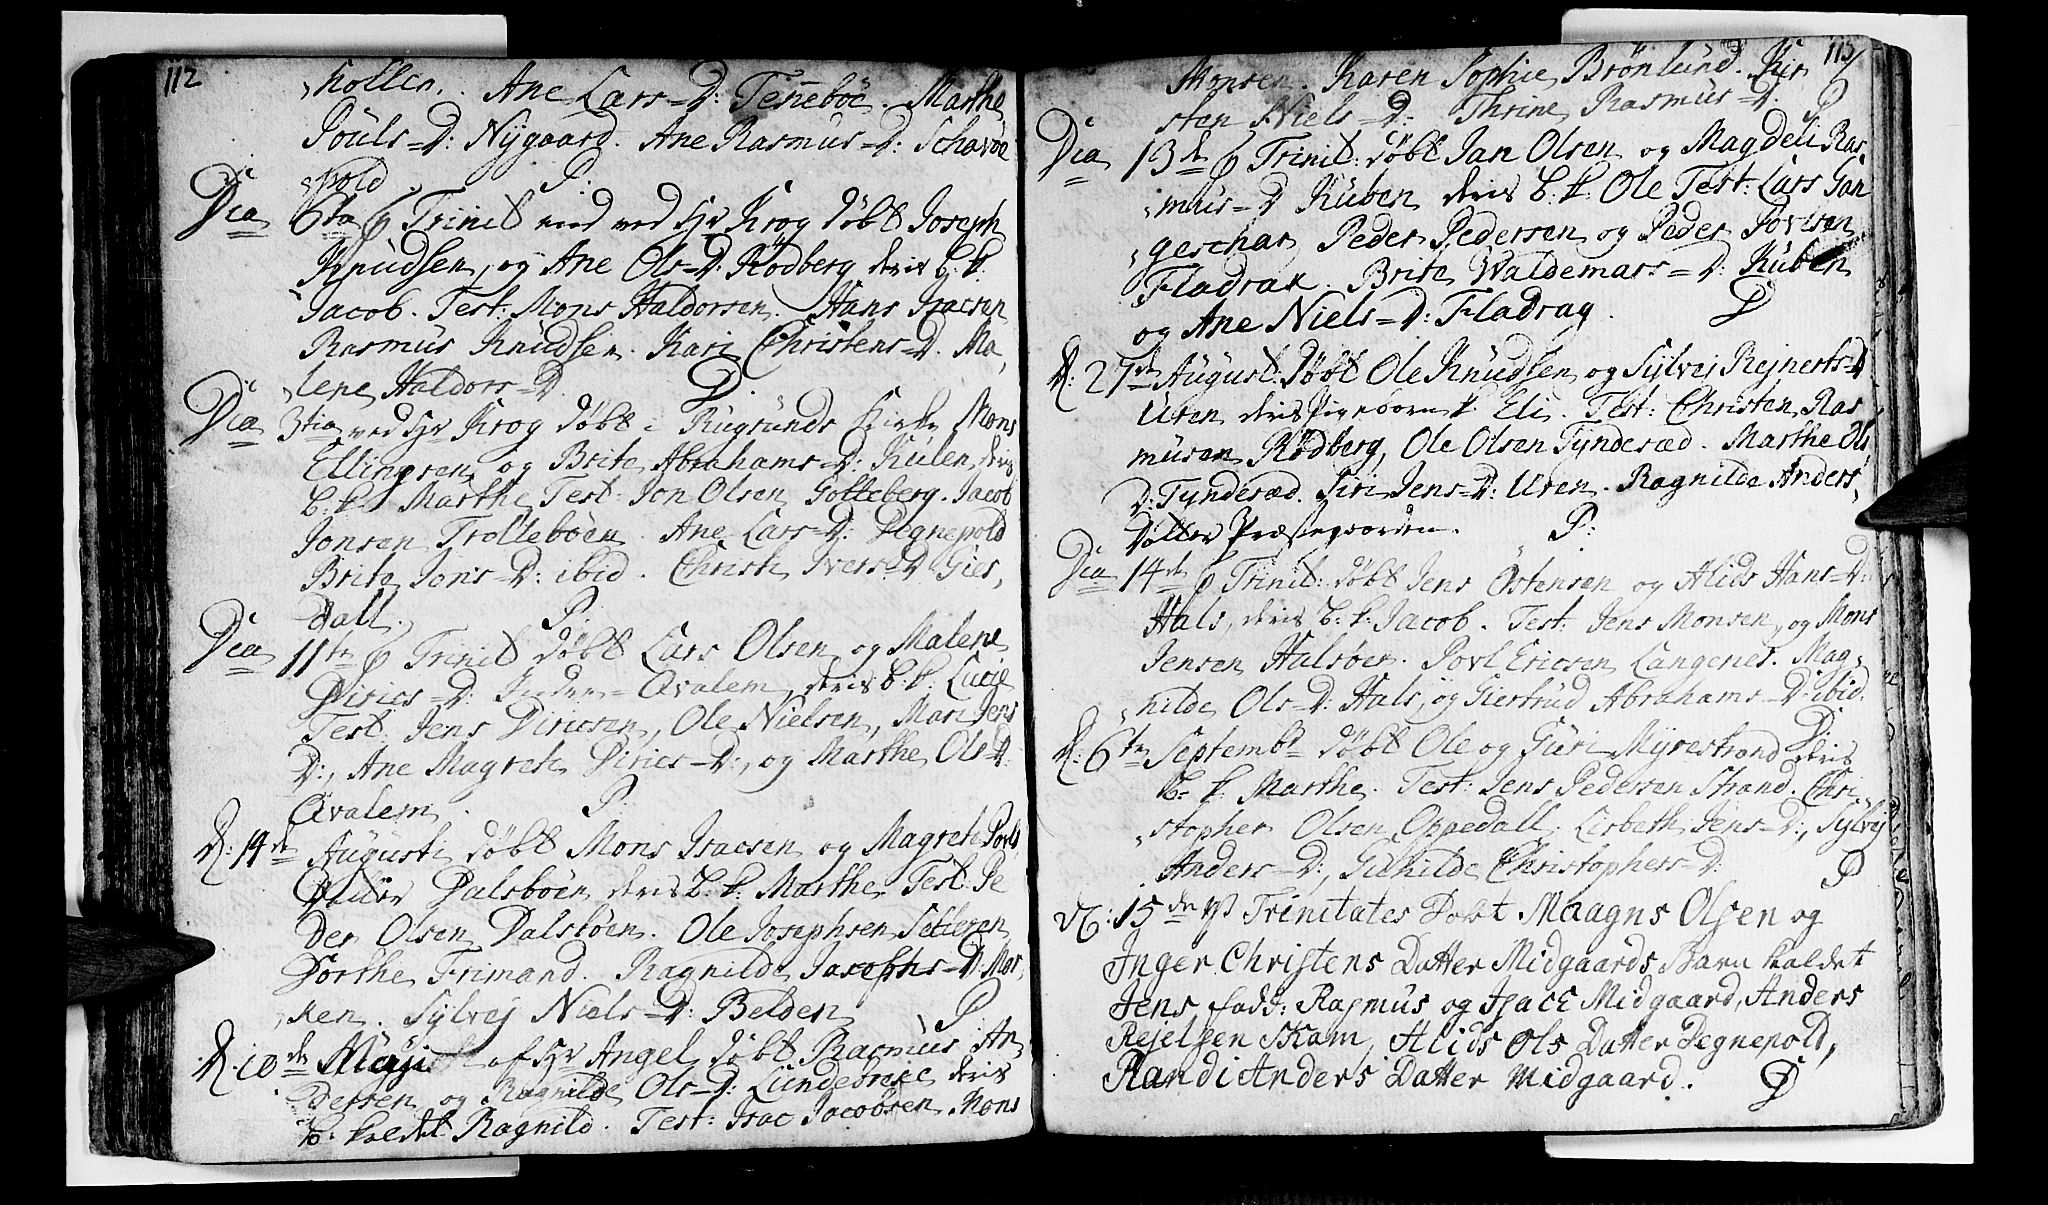 112
hollen. Ane Lars=D: Tenebøe. Marthe
Pouls=D: Nygaard. Ane Rasmus=D: Schavøe
pold P:
Dca 6ta p Trinit ved Hr Krog døbt Joseph
Knudsen, og Ane Ols=D: Rødberg deris b: k.
Jacob. Test: Mons Haldorsen. Hans Isacsen
Rasmus Knudsen. Kari Christens=D. Ma,
lene Haldors=D. P
Dca 3tia ved Hr Krog døbt i Rugsunds Kirke Mons
Ellingsen og Brite Abrahams=D: Kulen, deris
b: k. Marthe Test: Jon Olsen Gotteberg. Jacob
Jonsen Trolleboen. Ane Lars=D: Degnepold
Brite Jons=D: ibid. Christi Ivers=D Gies,
dall. P.
Dca 11te p Trinit døbt Lars Olsen og Malene
Dirics=D: Qvalem, deris b: k. Lucie
Test: Jens Diricsen, Ole Nielsen, Mari Jens
D:, Ane Magrete Dirics=D:, og Marthe Ols=D:
Qvalem. P.
D: 14de Augusti døbt Mons Isacsen og Magrete Povls
Datter Dalsbøen, deris b: k. Marthe. Test: Pe
der Olsen Dalsbøen. Ole Josephsen Sætteren
Dorthe Frimand. Ragnilde Josephs=D: Mor,
ken. Sylvej Niels=D: Belden P
D. 10de Maji af Hr Angel døbt Rasmus An
dersen og Ragnilde Ols=D: Lundebrecke deris
b: kaldet Ragnild. Test: Isac Jacobsen. Mons
113
Monsen. Karen Sophie Brønlund. Kir
sten Niels=D: Thrine Rasmus=D. P
Dca 13de p Trinit: døbt Jan Olsen og Magdeli Ras,
mus=D Kuben deris b: k. Ole Test: Lars Gan
geschar, Peder Pedersen og Peder Povlsen
Fladrak. Brite Waldemars=D: Kuben
og Ane Niels=D: Fladrag. P
D: 27de August: døbt Ole Knudsen og Sylvej Rejnerts=D
Uren deris Pigebarn k. Eli. Test: Christen Ras
musen Rødberg, Ole Olsen Tynderæd. Marthe Ols
D: Tynderæd. Siri Jens=D: Uren. Ragnilde Anders
Datter Præstegaarden. P:
Dca 14de p Trinit: døbt Jens Østensen og Alids Hans=D:
Hals, deris b: k: Jacob. Test: Jens Monsen, og Mons
Jensen Halsøen. Povl Ericsen Langenes. Mag,
nilde Ols=D: Hals, og Giertrud Abrahams=D: ibid.
D: 6te Septembr døbt Ole og Guri Myrestrand deris P:
b: k. Marthe. Test: Jens Pedersen Strand. Chri
stopher Olsen Oppedall. Lisbeth Jens=D:, Sylvej
Anders=D:, Gunilde Christophers=D: P
15de p Trinitates Døbt Maagns Olsen og
Inger Christens Datter Midgaards Barn kaldet
Jens, fadd: Rasmus og Isace Midgaard, Anders
Rejelsen Skam, Alids Ols Datter Degnepold,
Randi Anders Datter Midgaard. P